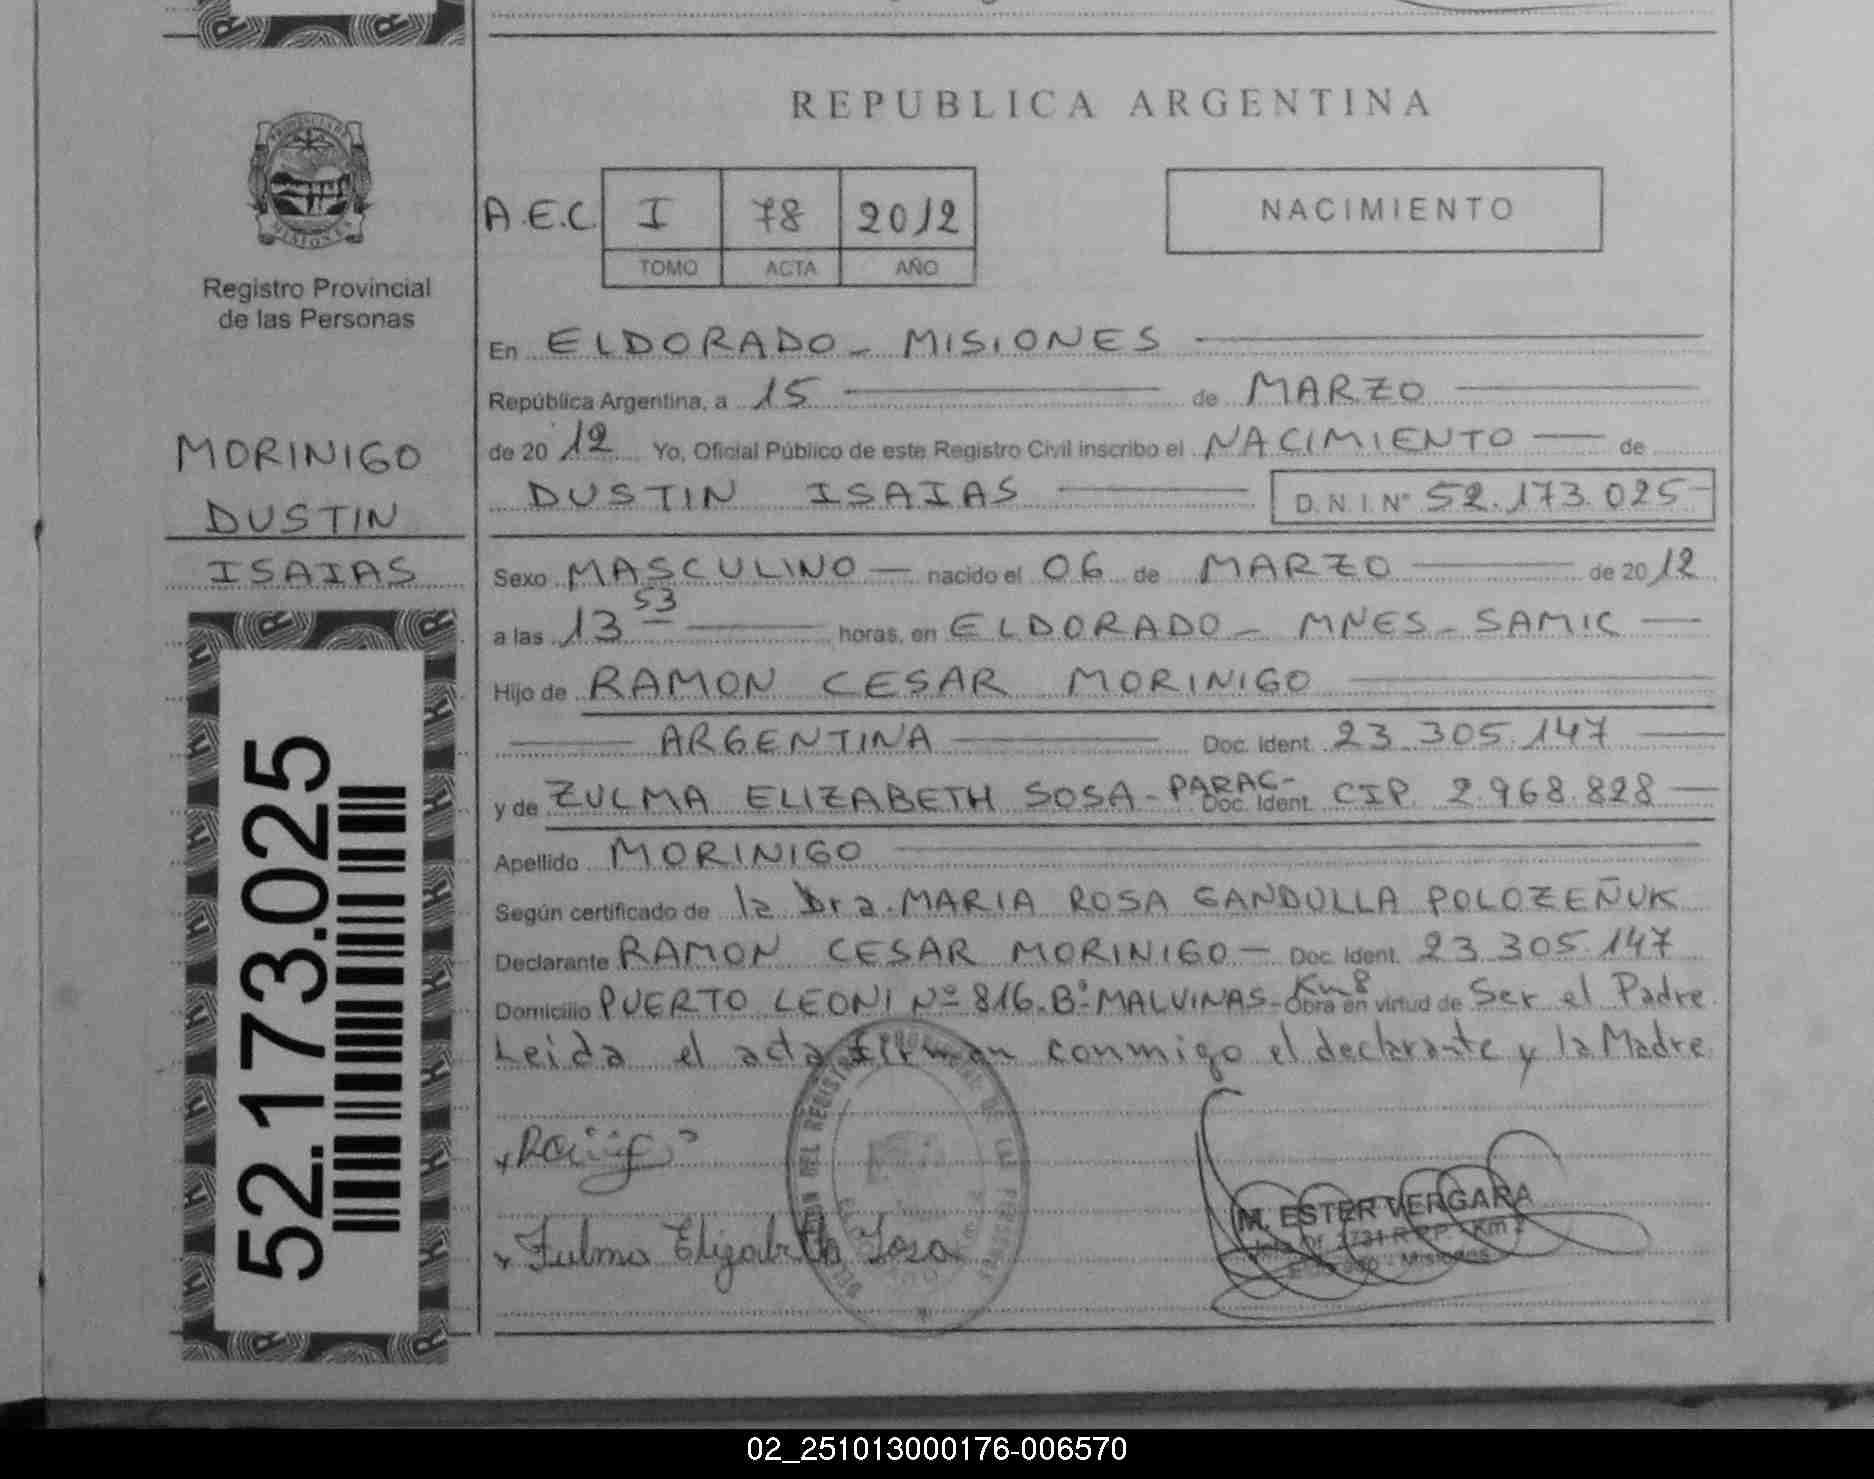 REPUBLICA ARGENTINA
A.E.C. I 78 2012
TOMO ACTA AÑO
NACIMIENTO
Registro Provincial
de las Personas
MORINIGO
DUSTIN
ISAIAS
52.173.025
En ELDORADO - MISIONES
República Argentina, a 15 de MARZO
de 20 12 Yo, Oficial Público de este Registro Civil inscribo el NACIMIENTO de
DUSTIN ISAIAS D.N.I. N° 52.173.025
Sexo MASCULINO nacido el 06 de MARZO de 20 12
a las 13 53 horas, en ELDORADO - MNES - SAMIC
Hijo de RAMON CESAR MORINIGO
ARGENTINA Doc. Ident. 23.305.147
y de ZULMA ELIZABETH SOSA - PARAG- Doc. Ident. CIP. 2.968.828
Apellido MORINIGO
Según certificado de la Dra. MARIA ROSA GANDULLA POLOZEÑUK
Declarante RAMON CESAR MORINIGO - Doc. Ident. 23.305.147
Domicilio PUERTO LEONI Nº 816. Bº MALVINAS - Km 8 Obra en virtud de Ser el Padre
Leida el acta firman conmigo el declarante y la Madre
Zulma Elizabeth Sosa
M. ESTER VERGARA
02_251013000176-006570